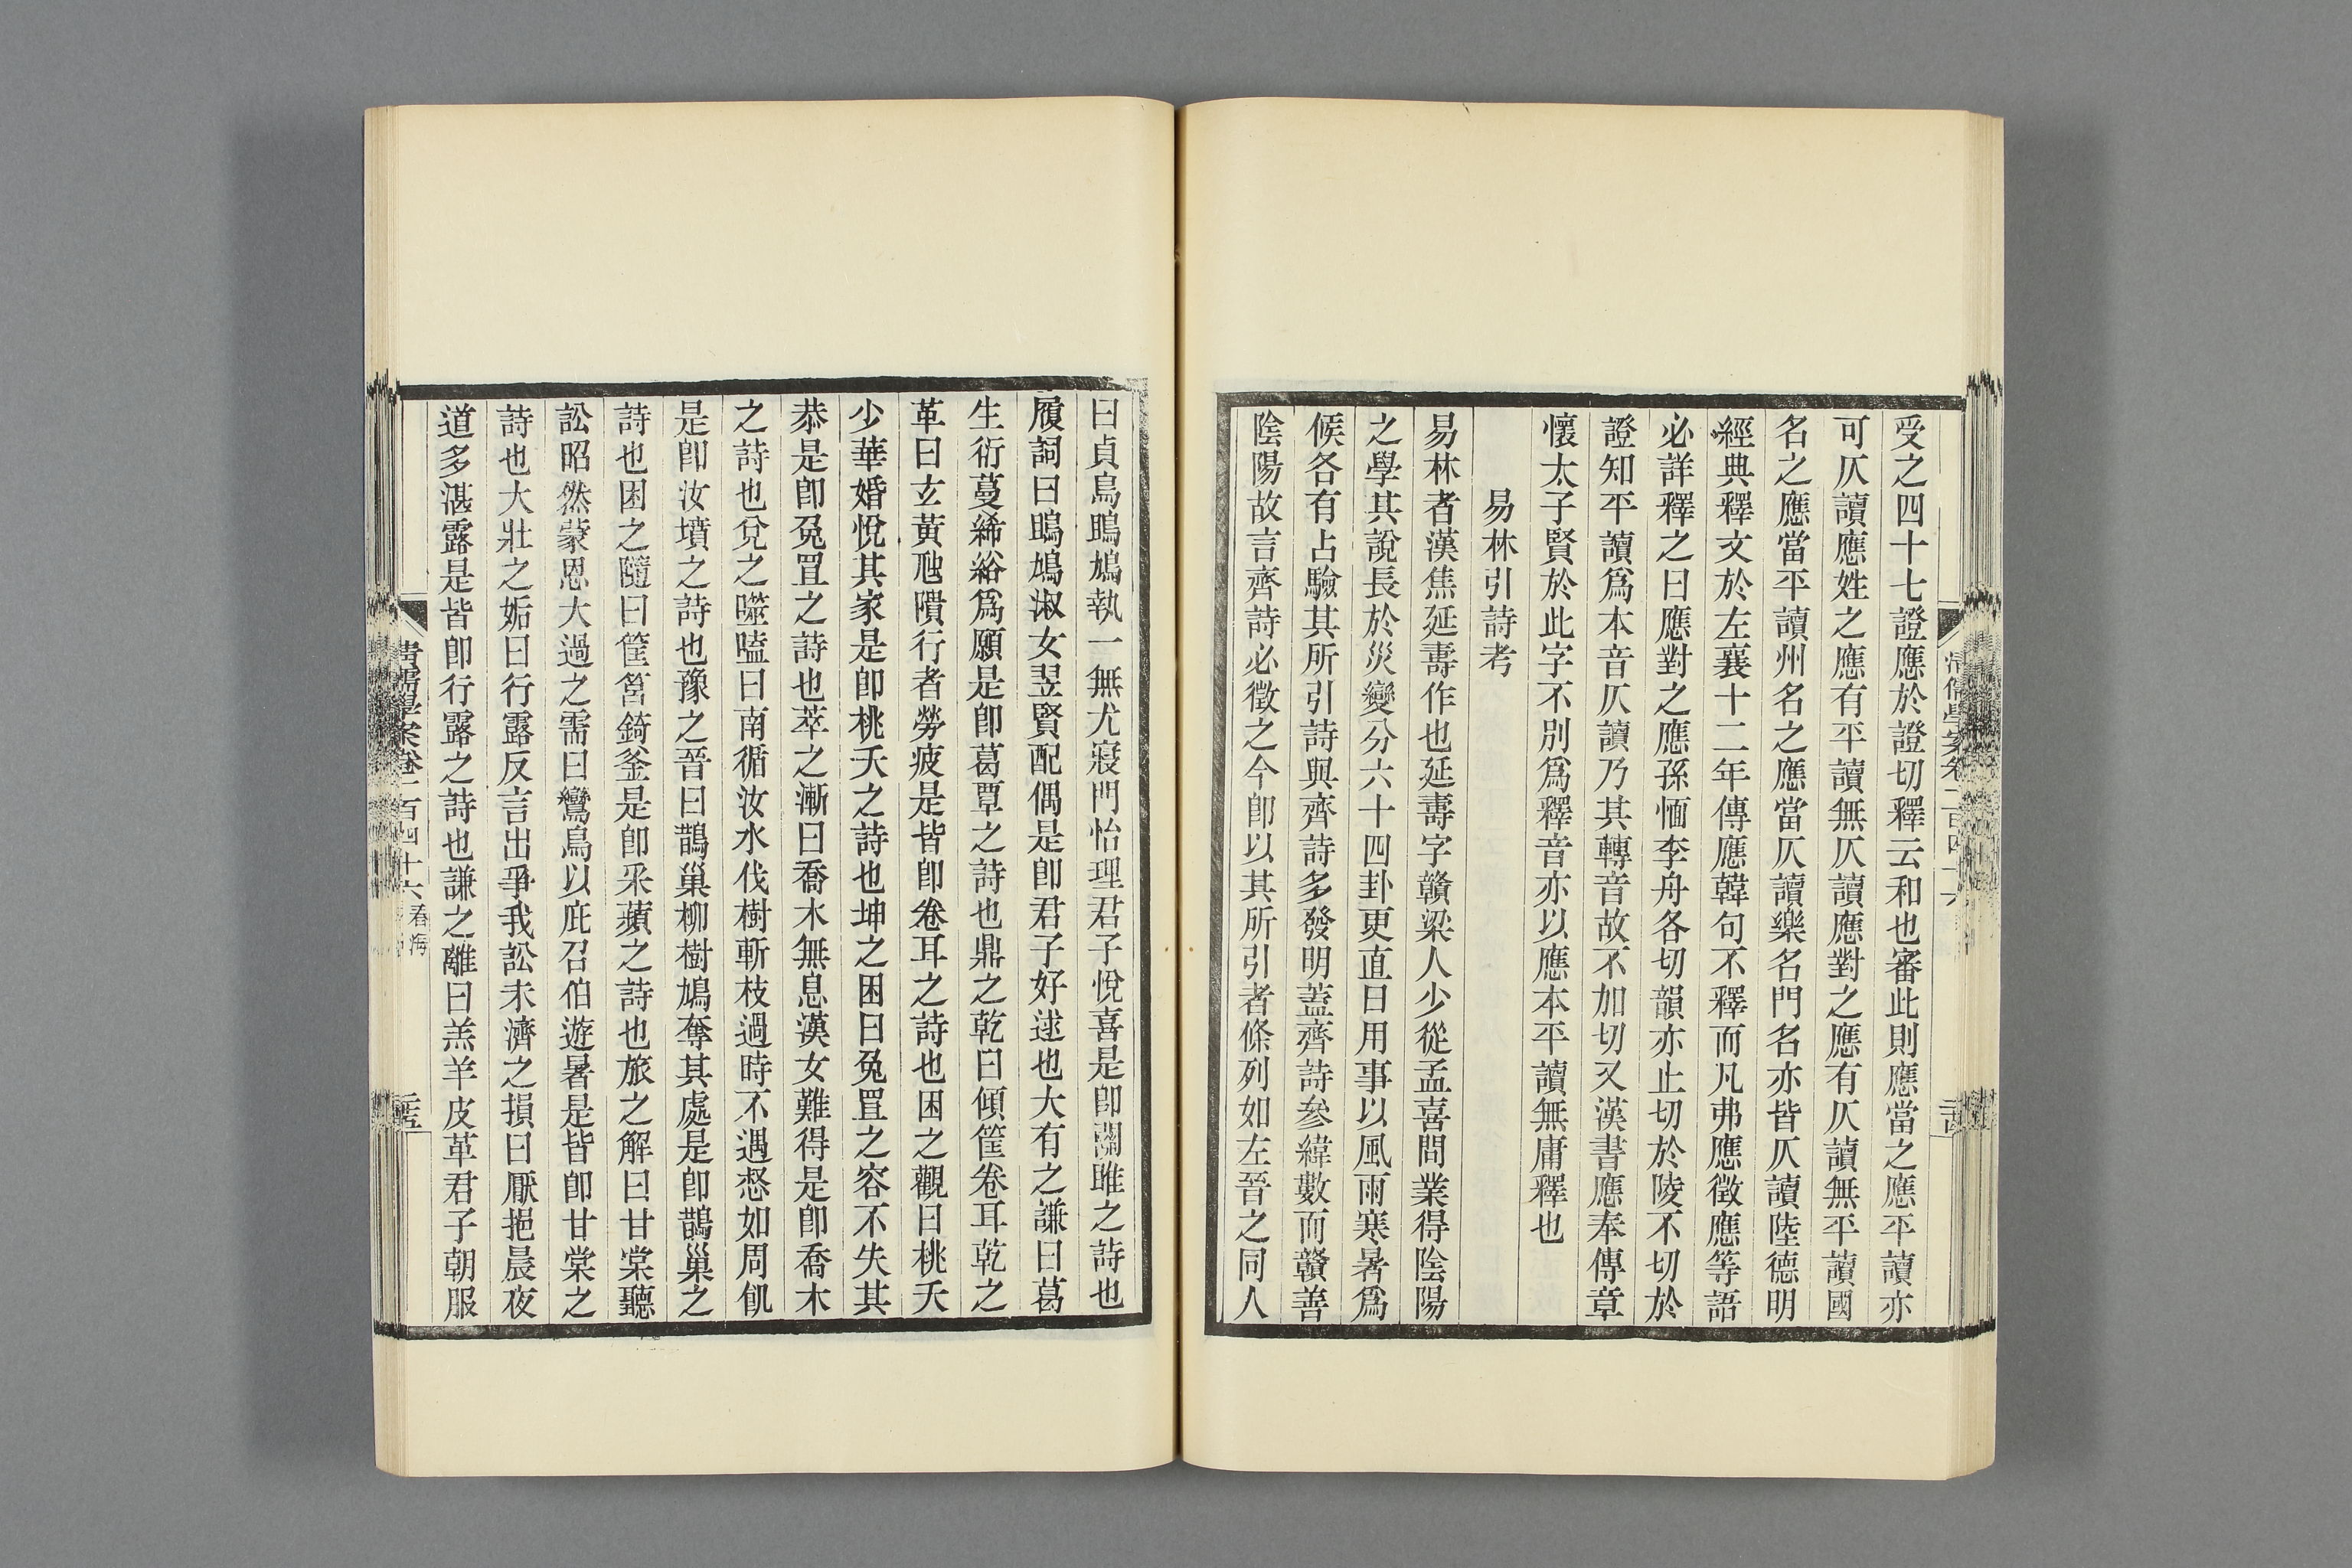 受之四十七證應於證切釋云和也審此則應當之應平讀亦
可仄讀應姓之應有平讀無仄讀應對之應有仄讀無平讀國
名之應當平讀州名之應當仄讀樂名門名亦皆仄讀陸德明
經典釋文於左襄十二年傳應韓句不釋而凡弗應徵應等語
必詳釋之曰應對之應孫愐李舟各切韻亦止切於陵不切於
證知平讀爲本音仄讀乃其轉音故不加切又漢書應奉傳章
懷太子賢於此字不別爲釋音亦以應本平讀無庸釋也
易林引詩考
易林者漢焦延壽作也延壽字贛梁人少從孟喜問業得陰陽
之學其說長於災變分六十四卦更直日用事以風雨寒暑爲
候各有占驗其所引詩與齊詩多發明蓋齊詩參緯數而贛善
陰陽故言齊詩必徵之今卽以其所引者條列如左晉之同人
曰貞鳥鴡鳩執一無尤寢門怡理君子悅喜是卽關雎之詩也
履詞曰鴡鳩淑女翌賢配偶是卽君子好逑也大有之謙曰葛
生衍蔓絺綌爲願是卽葛覃之詩也鼎之乾曰傾筐卷耳乾之
革曰玄黃虺隤行者勞疲是皆卽卷耳之詩也困之觀曰桃夭
少華婚悅其家是卽桃夭之詩也坤之困曰兔罝之容不失其
恭是卽兔罝之詩也萃之漸曰喬木無息漢女難得是卽喬木
之詩也兌之噬嗑曰南循汝水伐樹斬枝過時不遇惄如周飢
是卽汝墳之詩也豫之晉曰鵲巢柳樹鳩奪其處是卽鵲巢之
詩也困之隨曰筐筥錡釜是卽采蘋之詩也旅之解曰甘棠聽
訟昭然蒙恩大過之需曰鸞鳥以庇召伯遊暑是皆卽甘棠之
詩也大壯之姤曰行露反言出爭我訟未濟之損曰厭挹晨夜
道多湛露是皆卽行露之詩也謙之離曰羔羊皮革君子朝服